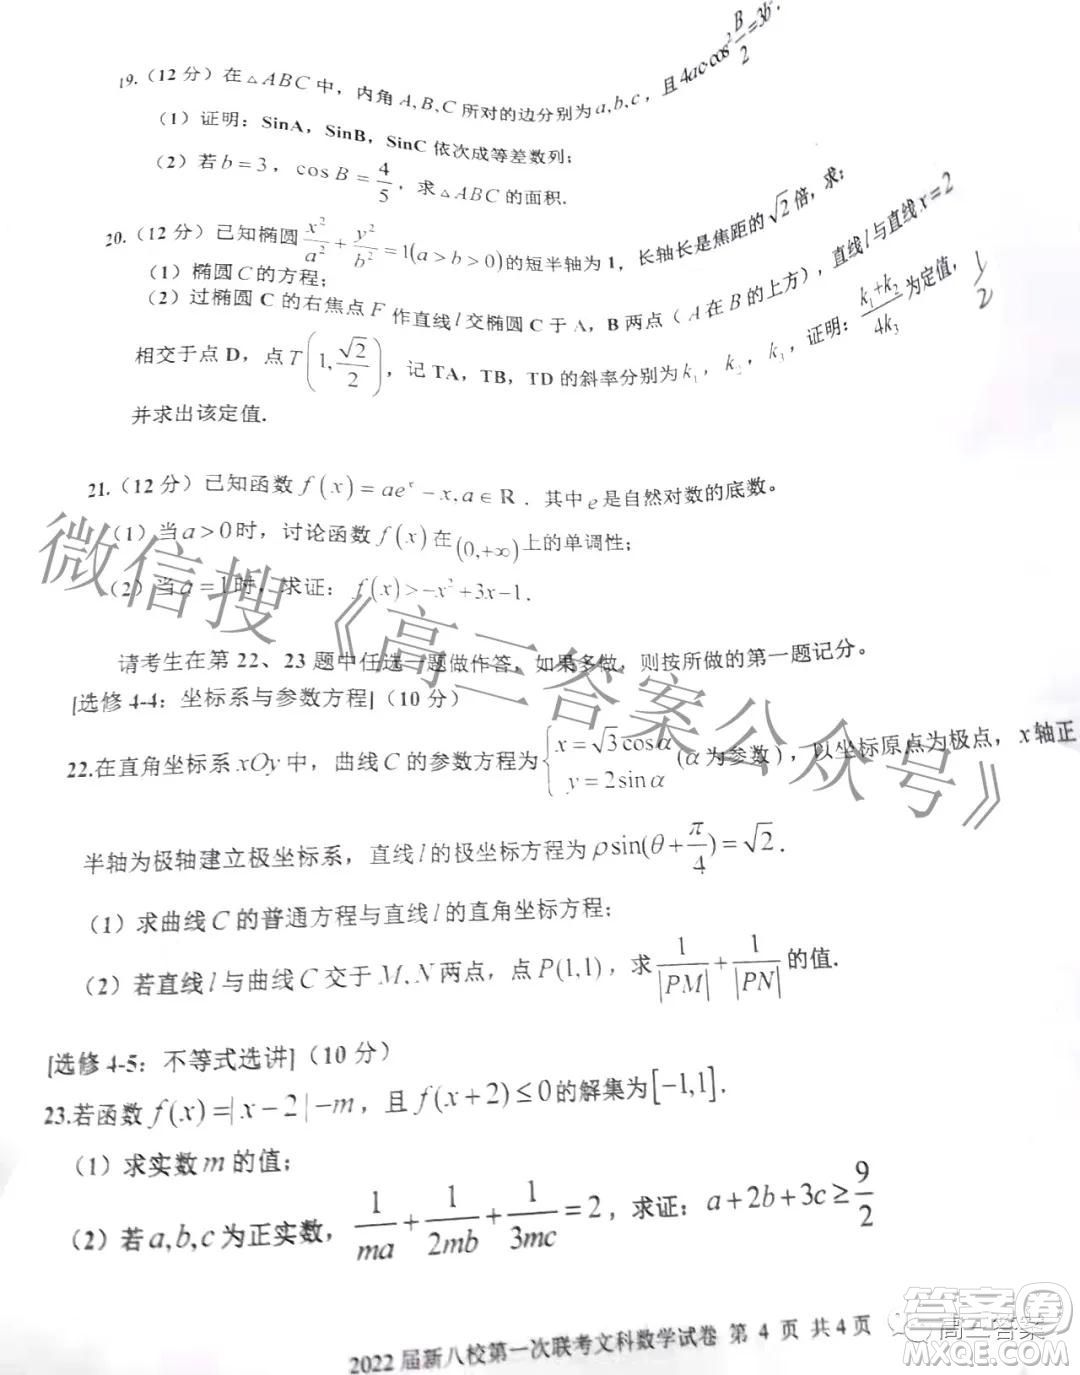 19.（12 分）在△ABC 中，内角 A,B,C 所对的边分别为 a,b,c，且 4ac·cos²B/2=3b².
（1）证明：SinA，SinB，SinC 依次成等差数列；
（2）若 b=3，cos B=4/5，求△ABC 的面积.
20.（12 分）已知椭圆 x²/a²+y²/b²=1(a>b>0)的短半轴为 1，长轴长是焦距的√2倍，求：
（1）椭圆 C 的方程；
（2）过椭圆 C 的右焦点 F 作直线 l 交椭圆 C 于 A，B 两点（A 在 B 的上方），直线 l 与直线 x=2
相交于点 D，点 T(1,√2/2)，记 TA，TB，TD 的斜率分别为 k₁，k₂，k₃，证明：(k₁+k₂)/4k₃ 为定值，
1/2
并求出该定值.
21.（12 分）已知函数 f(x)=aeˣ−x,a∈R．其中 e 是自然对数的底数。
（1）当 a>0时，讨论函数 f(x)在(0,+∞)上的单调性；
（2）当 a=1时，求证：f(x)>−x²+3x−1.
请考生在第 22、23 题中任选一题做作答，如果多做，则按所做的第一题记分。
[选修 4-4：坐标系与参数方程]（10 分）
22.在直角坐标系 xOy 中，曲线 C 的参数方程为{x=√3cosα y=2sinα (α为参数)，以坐标原点为极点，x 轴正
半轴为极轴建立极坐标系，直线 l 的极坐标方程为 ρsin(θ+π/4)=√2.
（1）求曲线 C 的普通方程与直线 l 的直角坐标方程；
（2）若直线 l 与曲线 C 交于 M,N 两点，点 P(1,1)，求 1/|PM|+1/|PN| 的值.
[选修 4-5：不等式选讲]（10 分）
23.若函数 f(x)=|x−2|−m，且 f(x+2)≤0的解集为[−1,1].
（1）求实数 m 的值；
（2）若 a,b,c 为正实数，1/ma+1/2mb+1/3mc=2，求证：a+2b+3c≥9/2
2022 届新八校第一次联考文科数学试卷 第 4 页 共 4 页
微信搜《高三答案公众号》
高三答案
答案圈
MXQE.COM